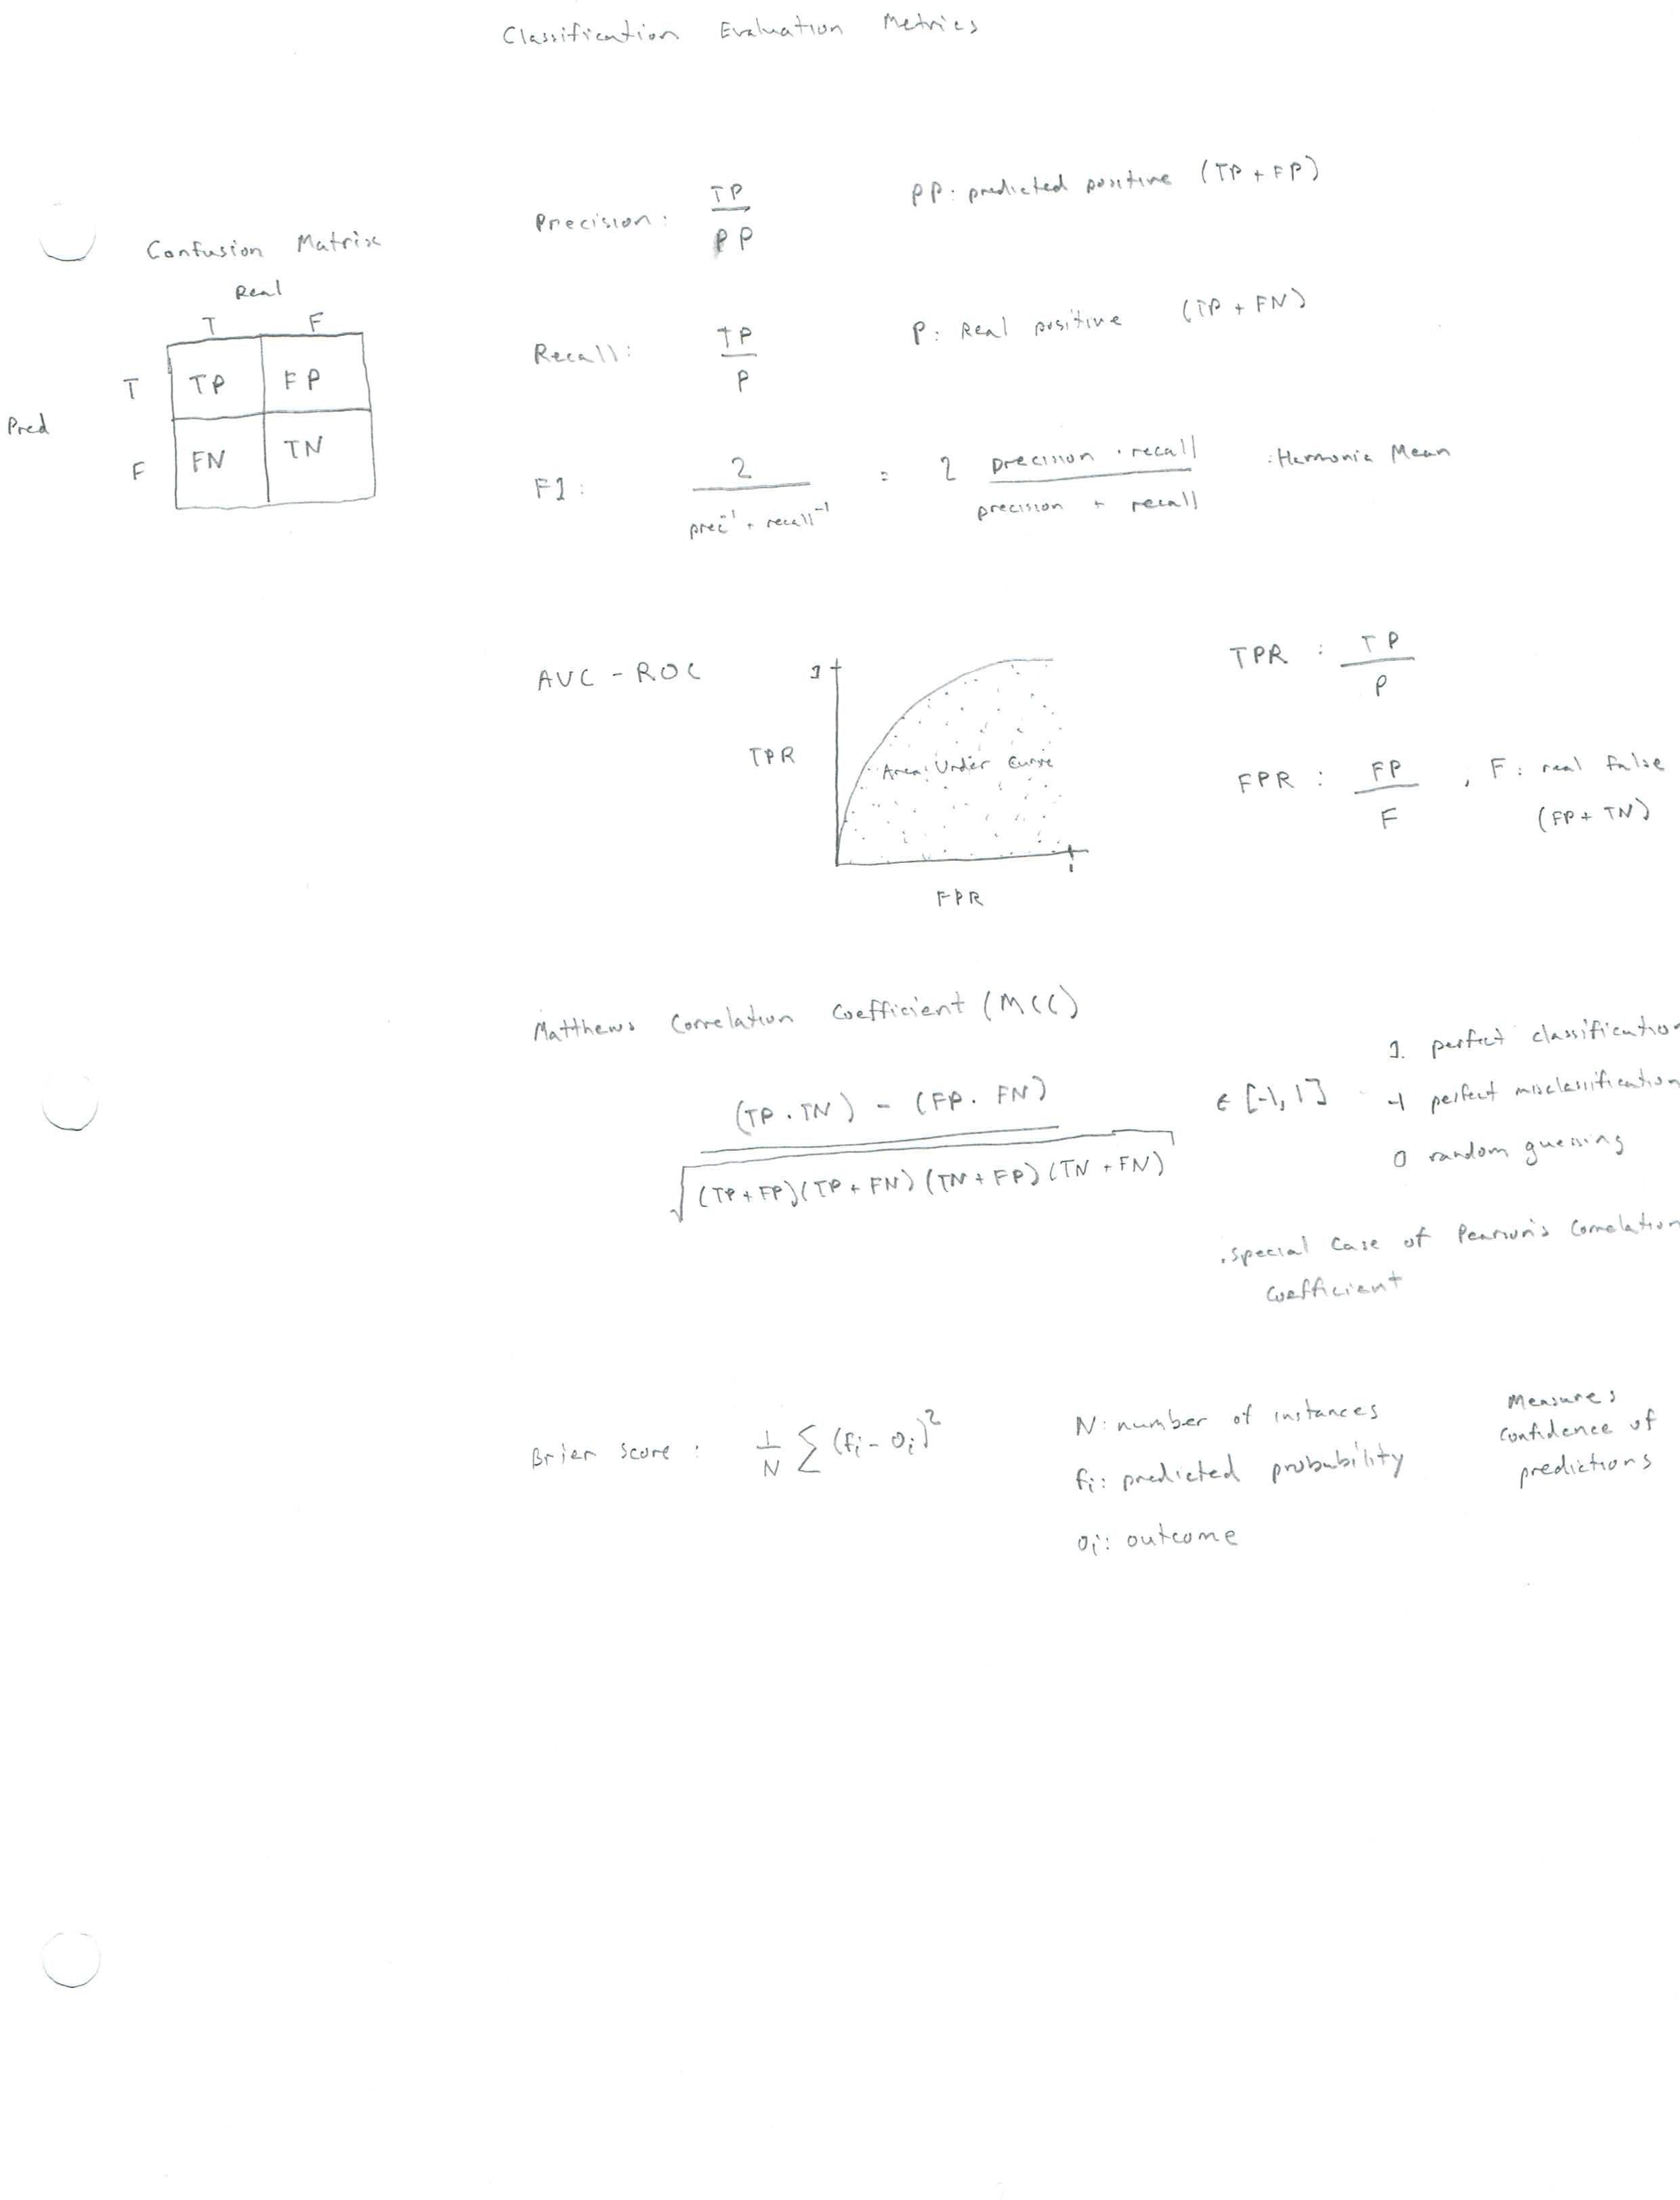 Classification Evaluation Metrics
Precision: TP / PP
PP: predicted positive (TP + FP)
Confusion Matrix
Real
T F
Pred
T TP FP
F FN TN
Recall: TP / P
P: Real positive (TP + FN)
F1: 2 / (prec⁻¹ + recall⁻¹) = 2 (precision · recall) / (precision + recall) : Harmonic Mean
AUC - ROC
1
TPR
Area Under Curve
1
FPR
TPR : TP / P
FPR : FP / F , F: real false
(FP + TN)
Matthews Correlation Coefficient (MCC)
(TP · TN) - (FP · FN)
√(TP + FP)(TP + FN)(TN + FP)(TN + FN)
∈ [-1, 1]
1. perfect classification
-1 perfect misclassification
0 random guessing
. special case of Pearson's Correlation
Coefficient
Brier Score : 1/N ∑ (fi - oi)²
N: number of instances
fi: predicted probability
oi: outcome
Measures
confidence of
predictions